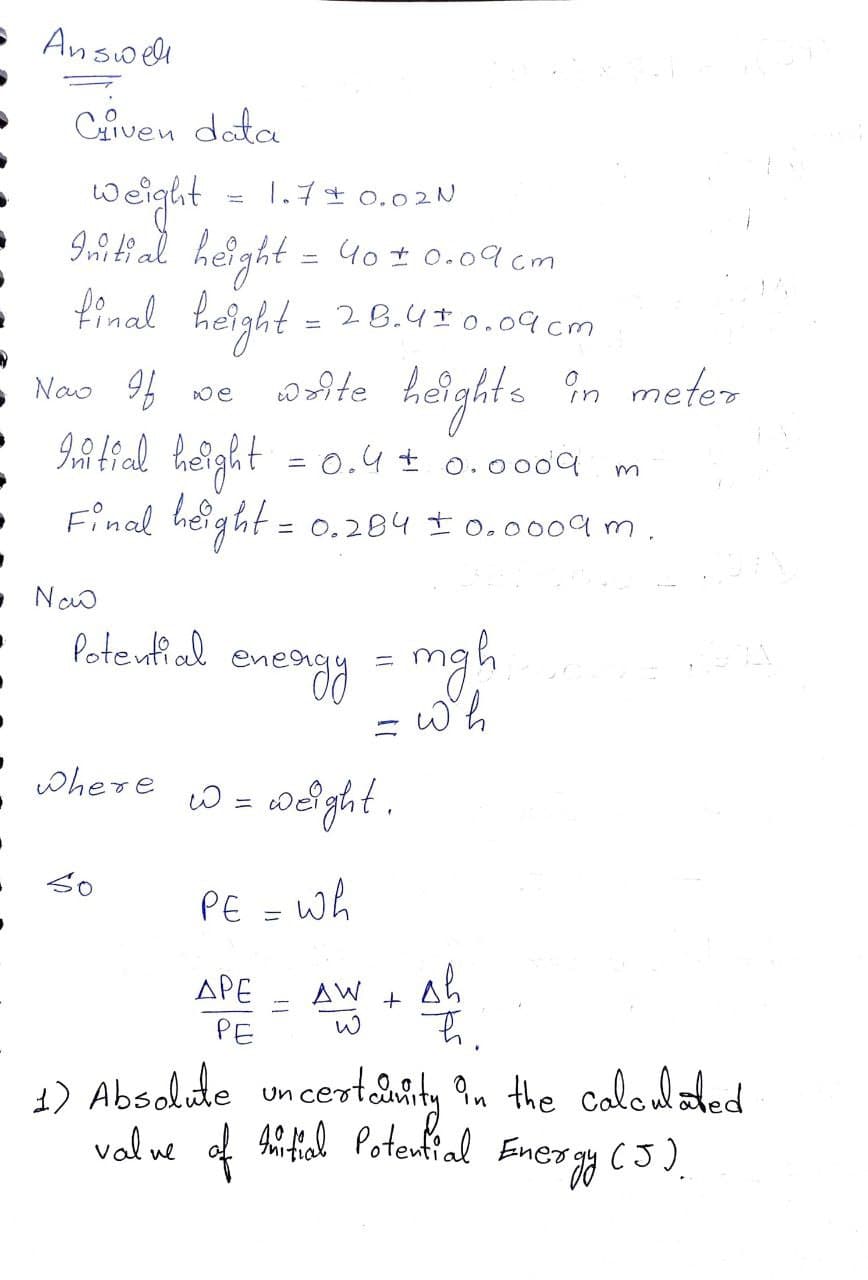 Answer
Given data
weight = 1.7 ± 0.02N
Initial height = 40 ± 0.09 cm
final height = 28.4 ± 0.09 cm
Now If we write heights in meter
Initial height = 0.4 ± 0.0009 m
Final height = 0.284 ± 0.0009 m.
Now
Potential energy = mgh
= wh
where w = weight.
So
PE = Wh
ΔPE/PE = ΔW/W + Δh/h.
1) Absolute uncertainity in the calculated
value of Initial Potential Energy (J).